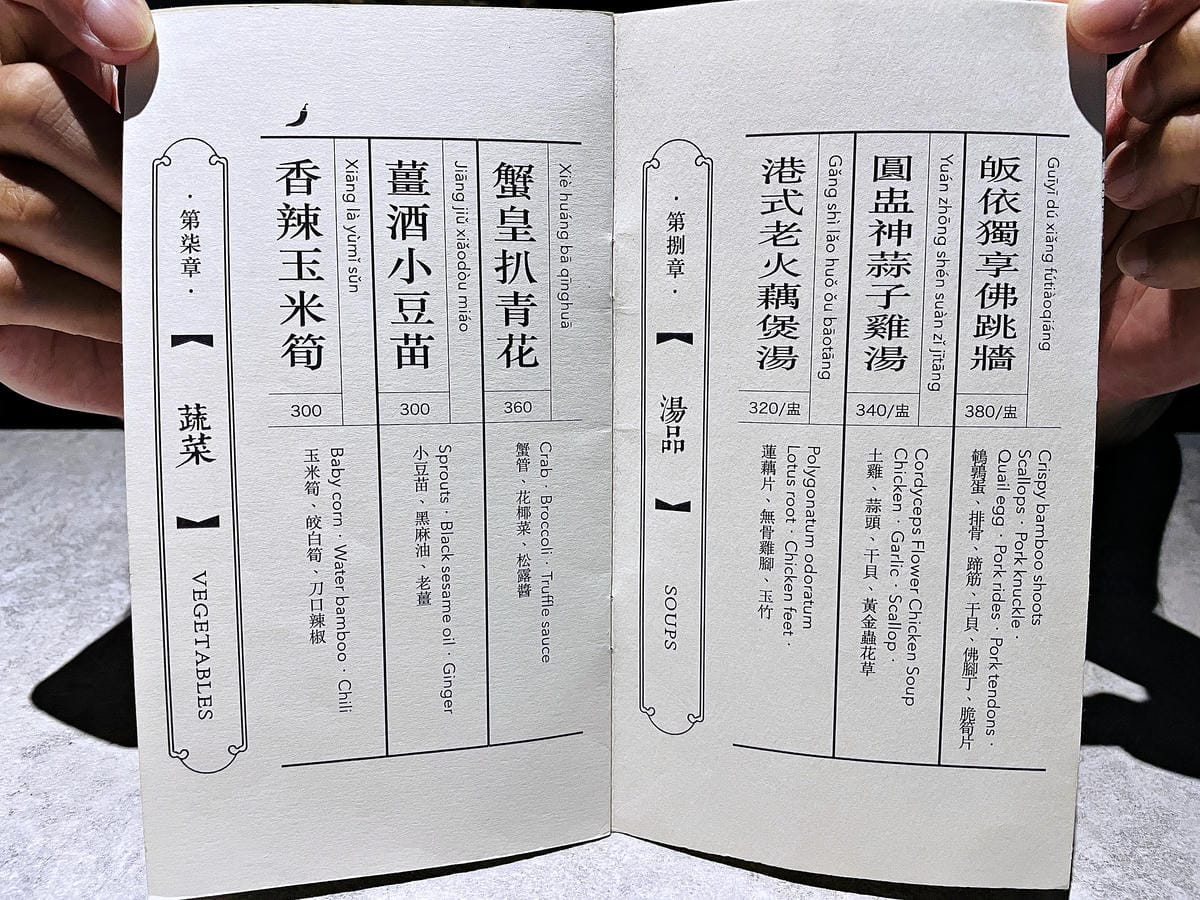 Guīyī dú xiǎng fútiàoqiáng
皈依獨享佛跳牆
380/盅
Crispy bamboo shoots
Scallops · Pork knuckle ·
Quail egg · Pork rides · Pork tendons ·
鵪鶉蛋、排骨、蹄筋、干貝、佛腳丁、脆筍片
Yuán zhōng shén suàn zǐ jītāng
圓盅神蒜子雞湯
340/盅
Cordyceps Flower Chicken Soup
Chicken · Garlic · Scallop ·
土雞、蒜頭、干貝、黃金蟲花草
Gǎng shì lǎo huǒ ǒu bāotāng
港式老火藕煲湯
320/盅
Polygonatum odoratum
Lotus root · Chicken feet ·
蓮藕片、無骨雞腳、玉竹
· 第捌章 ·
【 湯品 】
SOUPS
Xiè huáng bā qīnghuā
蟹皇扒青花
360
Crab · Broccoli · Truffle sauce
蟹管、花椰菜、松露醬
Jiāng jiǔ xiǎodòu miáo
薑酒小豆苗
300
Sprouts · Black sesame oil · Ginger
小豆苗、黑麻油、老薑
Xiāng là yùmǐ sǔn
香辣玉米筍
300
Baby corn · Water bamboo · Chili
玉米筍、皎白筍、刀口辣椒
· 第柒章 ·
【 蔬菜 】
VEGETABLES